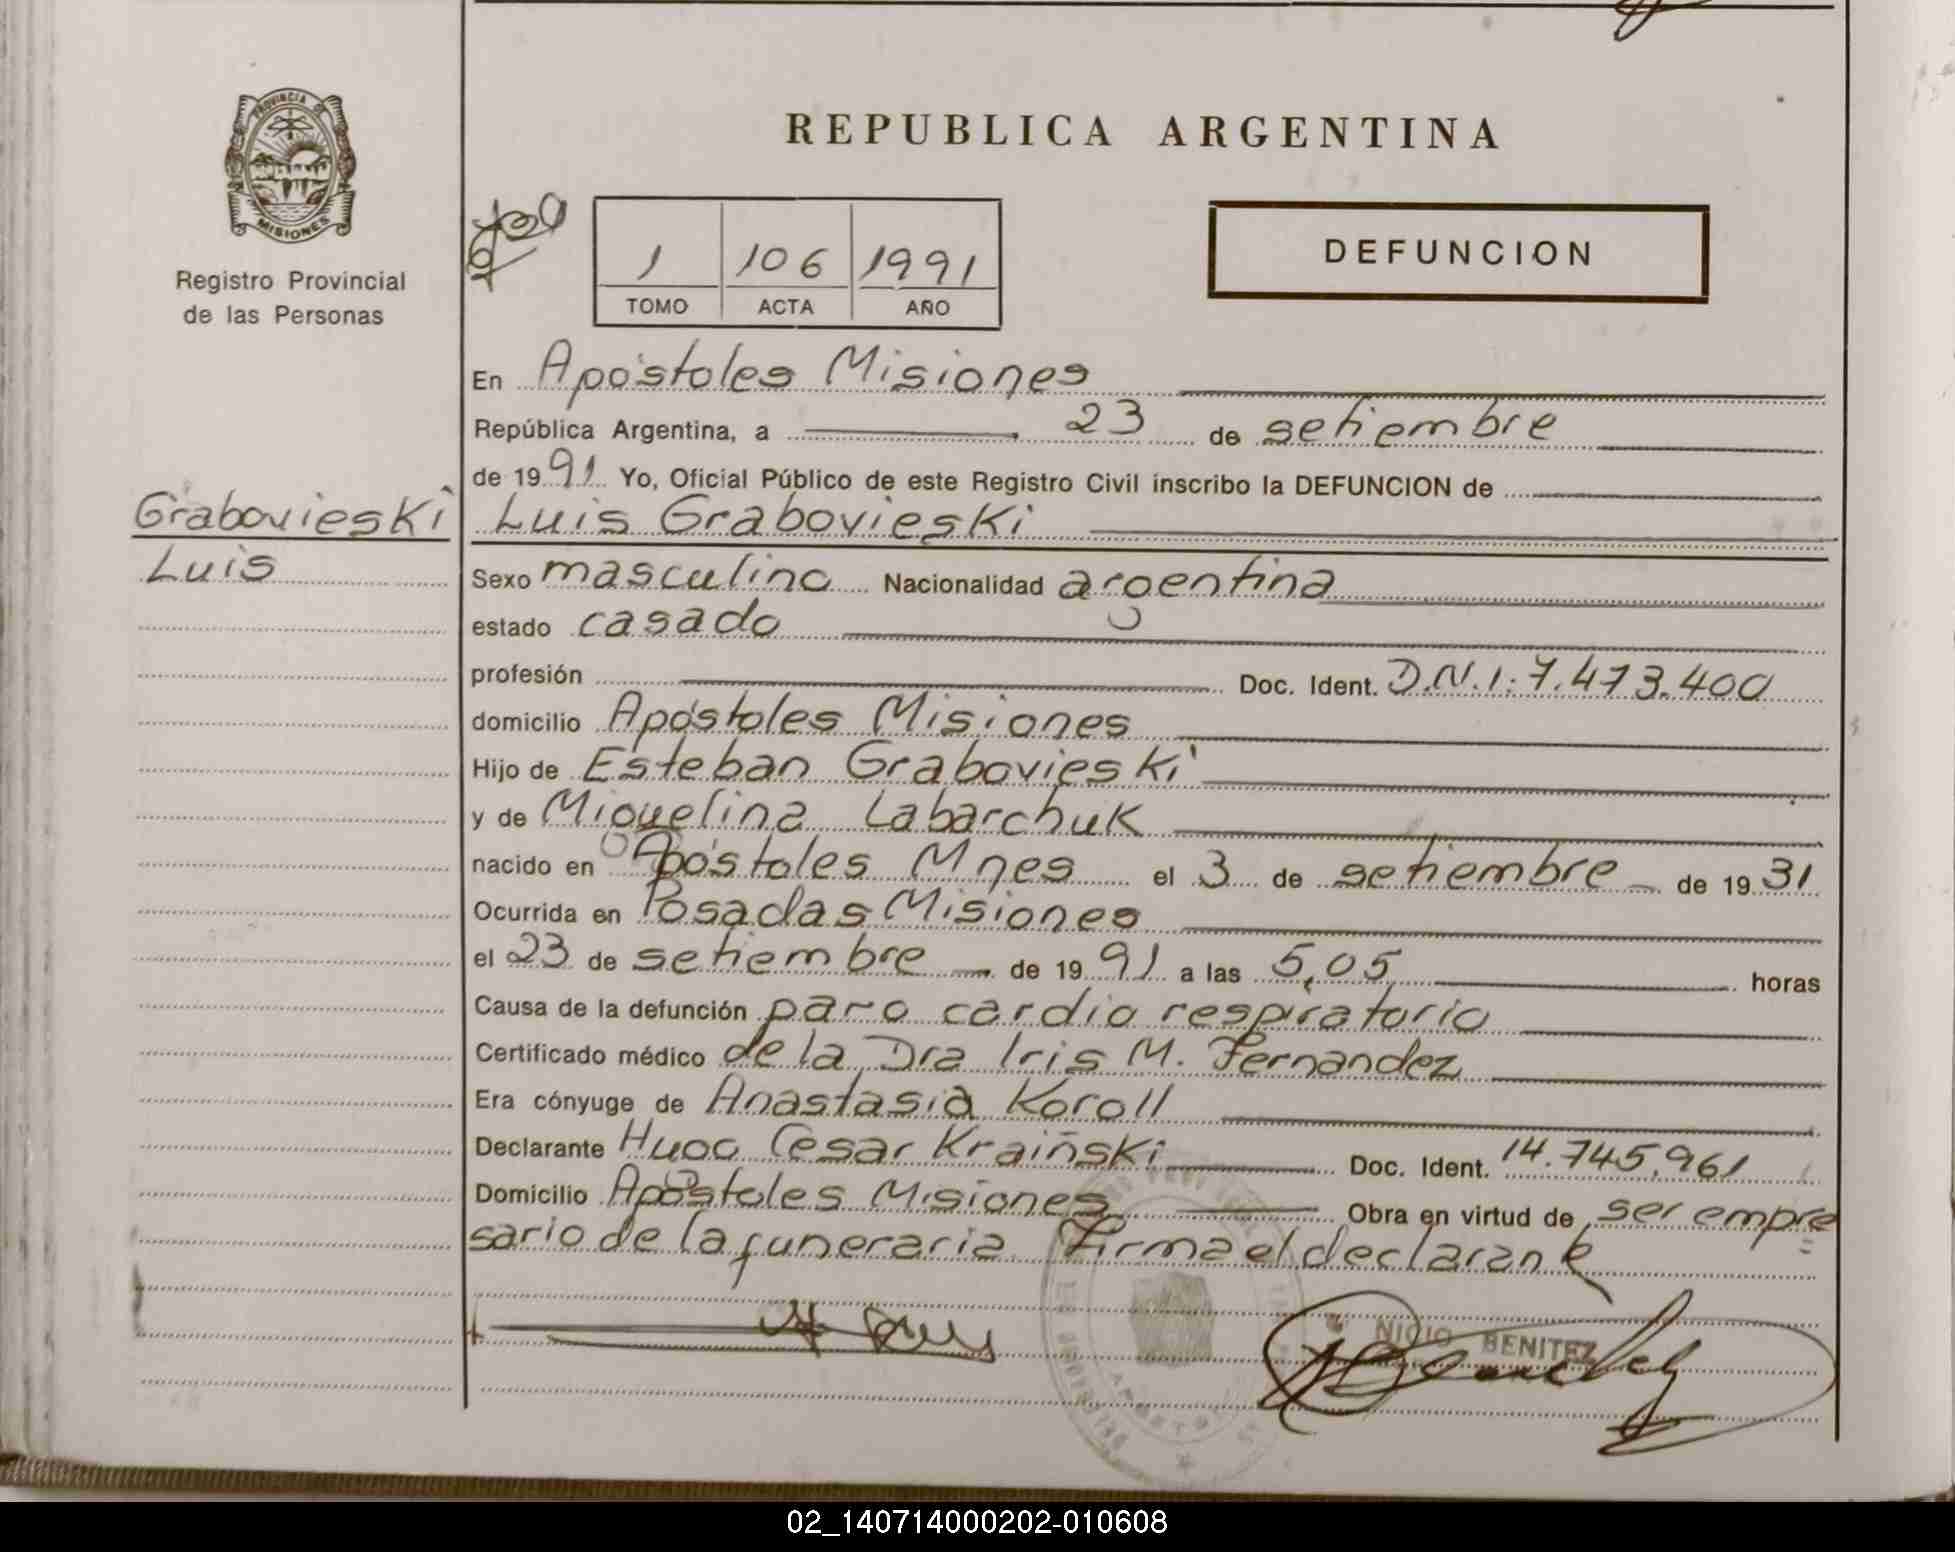 REPUBLICA ARGENTINA
PROVINCIA DE
MISIONES
Registro Provincial
de las Personas
1 106 1991
TOMO ACTA AÑO
DEFUNCION
En Apóstoles Misiones
República Argentina, a 23 de setiembre
de 1991 Yo, Oficial Público de este Registro Civil inscribo la DEFUNCION de
Grabovieski
Luis
Luis Grabovieski
Sexo masculino Nacionalidad argentina
estado casado
profesión Doc. Ident. D.N.I: 7.473.400
domicilio Apóstoles Misiones
Hijo de Esteban Grabovieski
y de Miguelina Labarchuk
nacido en Apóstoles Mnes el 3 de setiembre de 1931
Ocurrida en Posadas Misiones
el 23 de setiembre de 1991 a las 5,05 horas
Causa de la defunción paro cardio respiratorio
Certificado médico de la Dra Iris M. Fernandez
Era cónyuge de Anastasia Koroll
Declarante Hugo Cesar Kraiñski Doc. Ident. 14.745.961
Domicilio Apóstoles Misiones Obra en virtud de ser empre
sario de la funeraria Firma el declarante
NICIO BENITEZ
02_140714000202-010608